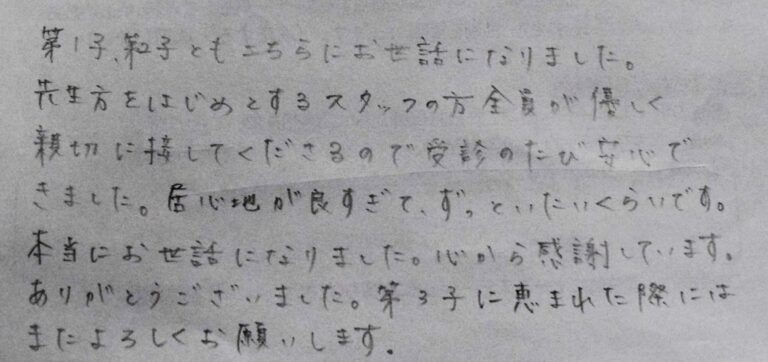 第1子、第2子ともこちらにお世話になりました。
先生方をはじめとするスタッフの方全員が優しく
親切に接してくださるので受診のたび安心で
きました。居心地が良すぎて、ずっといたいくらいです。
本当にお世話になりました。心から感謝しています。
ありがとうございました。第3子に恵まれた際には
またよろしくお願いします.